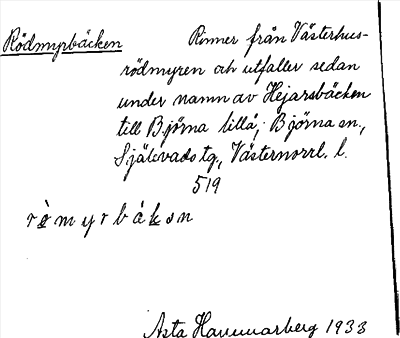 Rödmyrbäcken Rinner från Västerhus-
rödmyren och utfaller sedan
under namn av Hejarsbäcken
till Björna lillå; Björna sn.,
Själevads tg., Västernorrl. l.
519
rö̀myrbäkən
Asta Hammarberg 1933